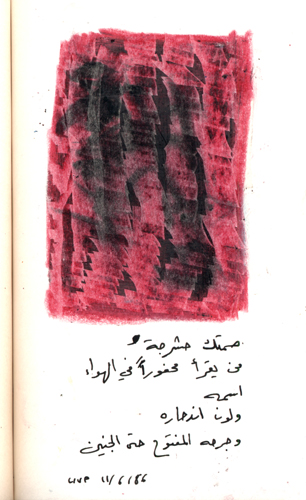 صمتك حشرجة و
من يقرأ محفوراً في الهواء
اسمه
ولون اندحاره
وجرحه المفتوح حتى الجنين
11/6/86